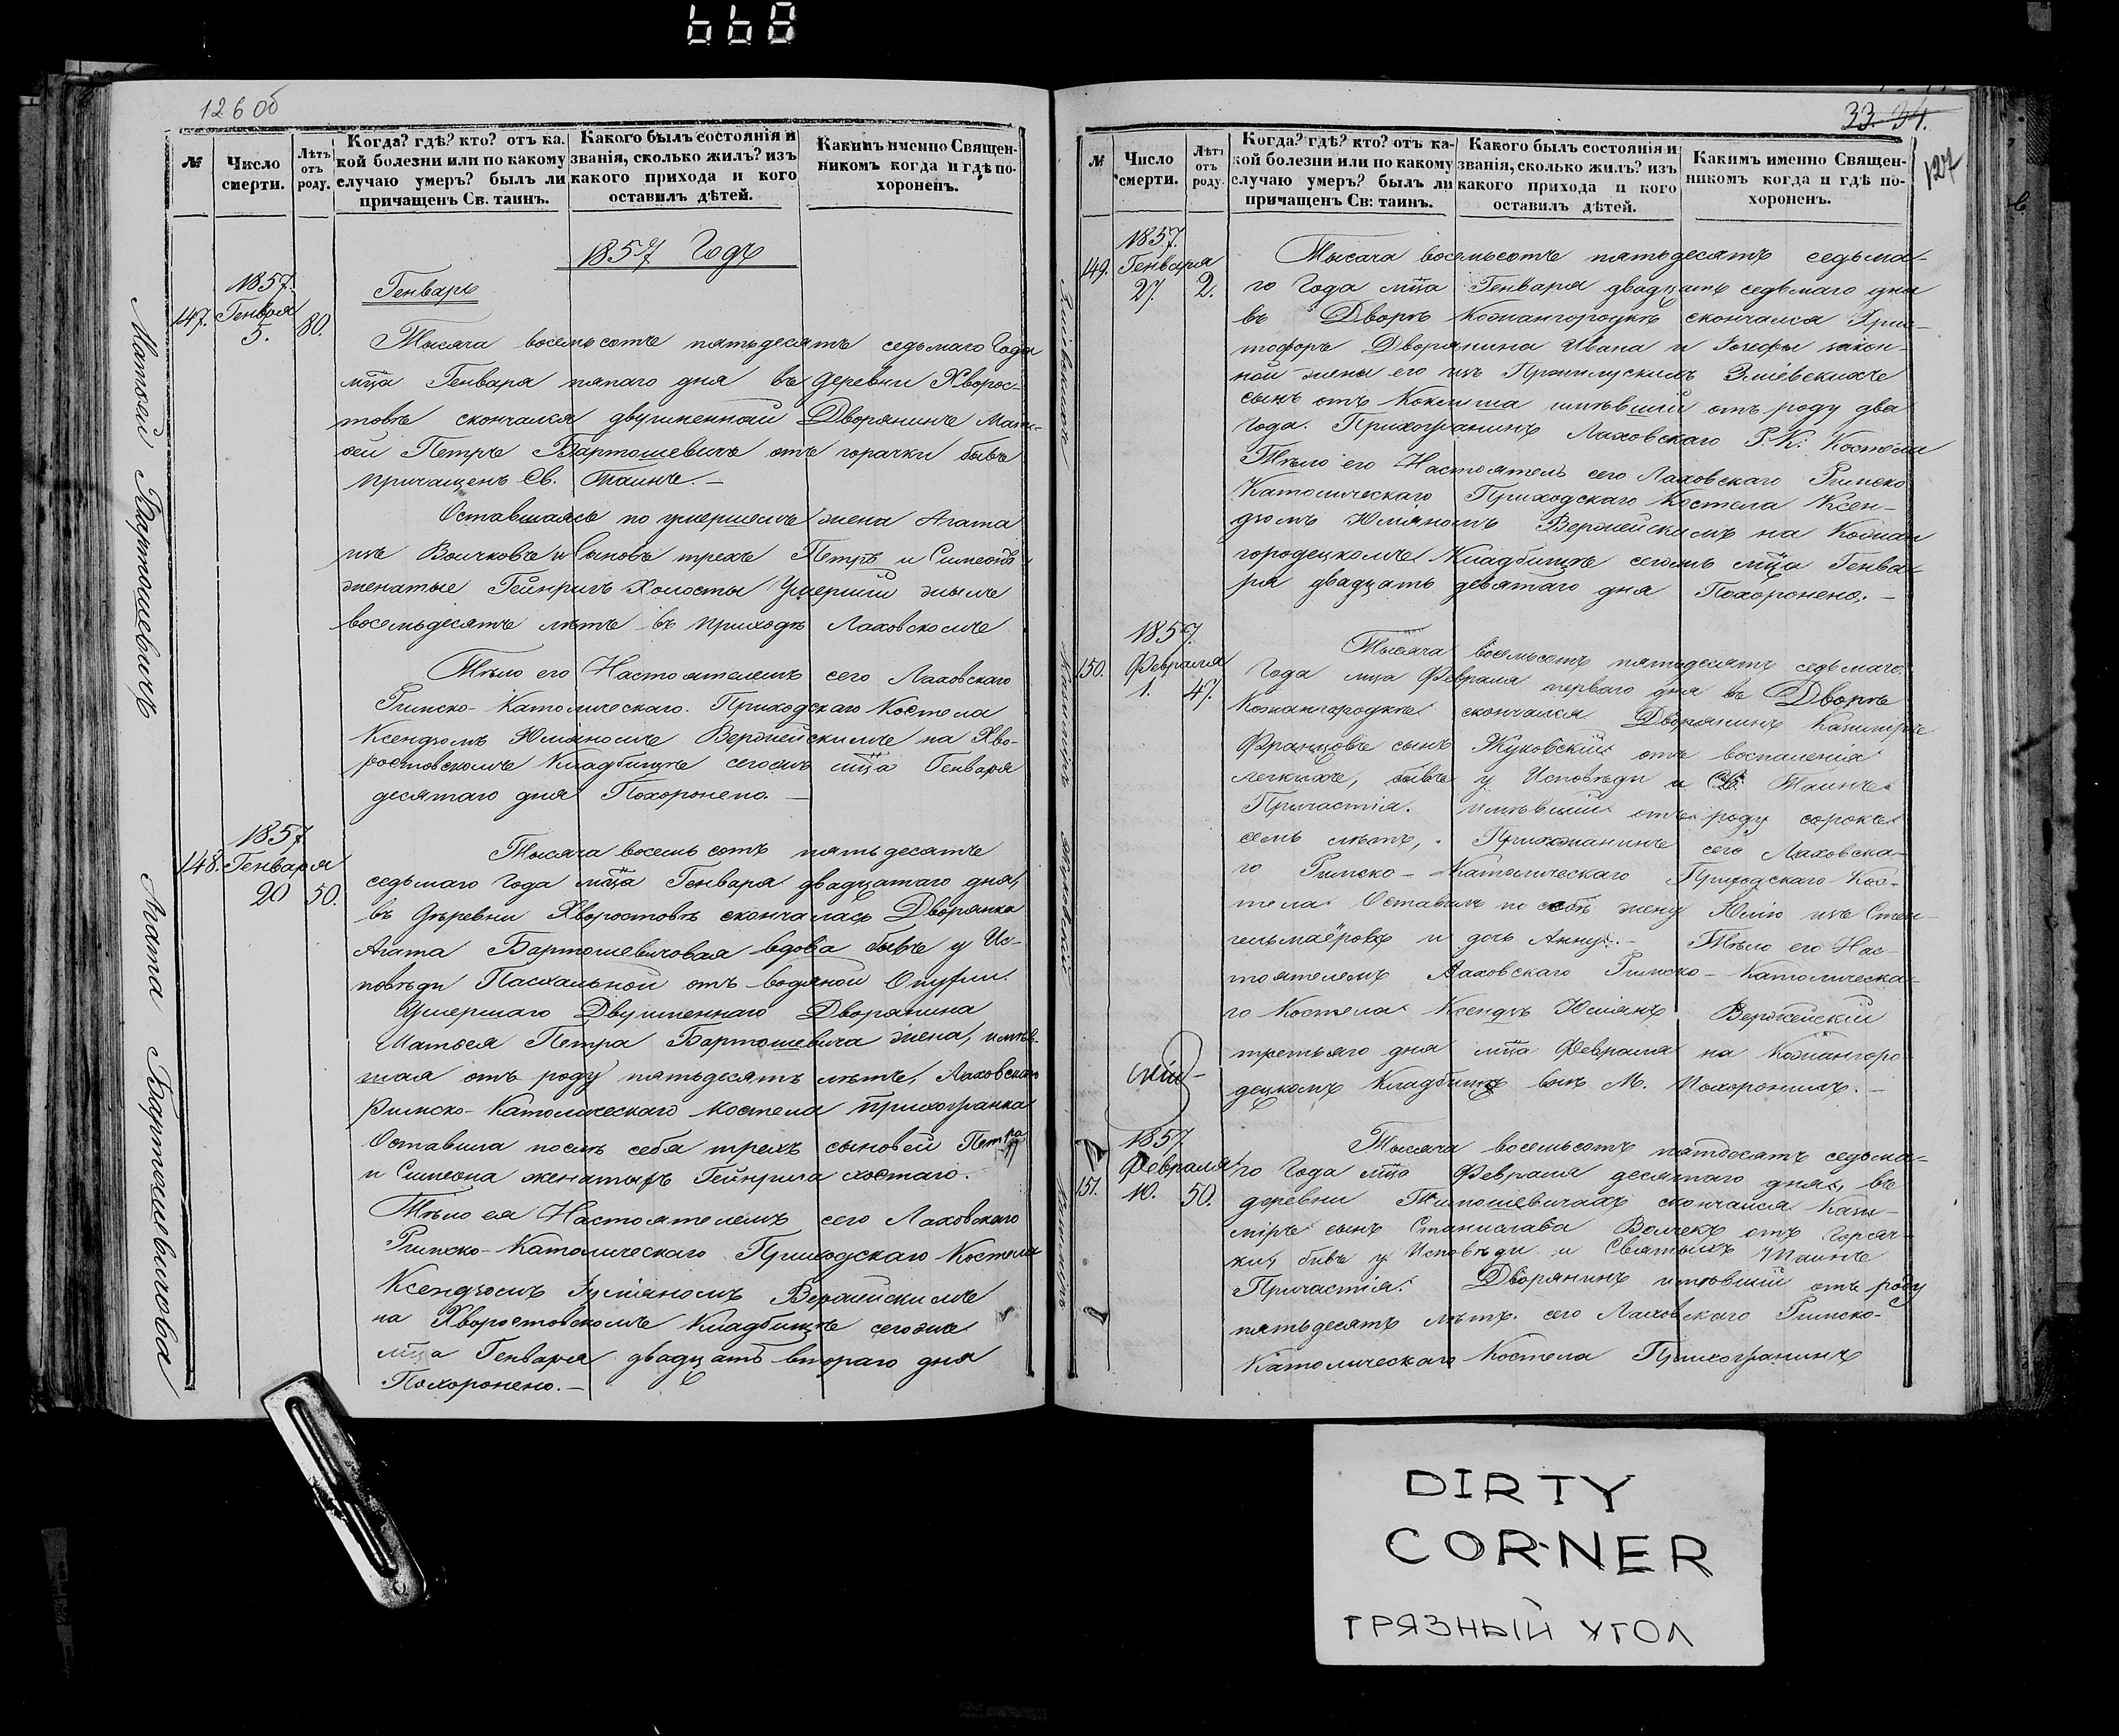 126 об
№
Число смерти.
Лѣтъ отъ роду.
Когда? гдѣ? кто? отъ ка-
кой болезни или по какому
случаю умеръ? былъ ли
причащенъ Св. таинъ.
Какого былъ состоянія и
званія, сколько жилъ? изъ
какого прихода и кого
оставилъ дѣтей.
Какимъ именно Священ-
никомъ когда и гдѣ по-
хороненъ.
1857 Годъ
Генварь
Матвей Бартошевичъ
147.
1857.
Генвря
5.
80.
Тысяча восемьсотъ пятьдесятъ седьмаго Года
мца Генваря пятаго дня въ деревни Хворос-
товѣ скончался двуименный Дворянинъ Мат-
вей Петръ Бартошевичъ отъ горячки бывъ
причащенъ Св. Таинъ. –
Оставшаясь по умершемъ жена Агата
изъ Воичковъ и Сыновъ трехъ Петръ и Симеонъ
женатые Гейнрихъ Холосты Умерший жылъ
восемьдесятъ лѣтъ въ приходѣ Лаховскомъ
Тѣло его Настоятелемъ сего Лаховскаго
Римско-Католическаго Приходскаго Костела
Ксендзомъ Юліаномъ Вержейскимъ на Хво-
ростовскомъ Кладбищѣ сегожъ мца Генваря
десятаго дня Похоронено. –
Агата Бартошевичова
148.
1857
Генваря
20
50.
Тысяча восемь сотъ пятьдесятъ
седьмаго Года мца Генваря двадцатаго дня,
въ деревни Хворостовѣ скончалась Дворянка
Агата Бартошевичовая вдова бывъ у Ис-
повѣди Пасхальной отъ водяной Опухли.
Умершаго Двуименнаго Дворянина
Матвея Петра Бартошевича жена, имѣв-
шая отъ роду пятьдесятъ лѣтъ, Лаховскаго
Римско-Католическаго Костела прихогранка
Оставила послѣ себя трехъ сыновей Петра
и Симеона женатыхъ Гейнриха хостаго.
Тѣло ея Настоятелемъ сего Лаховскаго
Римско-Католическаго Приходскаго Костела
Ксендзомъ Юліаномъ Вержейскимъ
на Хворостовскомъ Кладбищѣ сегожъ
мца Генваря двадцать втораго дня
Похоронено. –
33. 34.
127
№
Число смерти.
Лѣтъ отъ роду.
Когда? гдѣ? кто? отъ ка-
кой болезни или по какому
случаю умеръ? былъ ли
причащенъ Св: таинъ.
Какого былъ состоянія и
званія, сколько жилъ? изъ
какого прихода и кого
оставилъ дѣтей.
Какимъ именно Священ-
никомъ когда и гдѣ по-
хороненъ.
149.
1857.
Генваря
27.
2.
Тысяча восемьсотъ пятьдесятъ седьма-
го Года мца Генваря двадцать седьмаго дня
въ Дворѣ Кожангородкѣ скончался Хрис-
тофоръ Дворянина Ивана и Іозефы закон-
ной жены его изъ Змѣевскихъ
сынъ отъ Коклюша имѣвший отъ роду два
года. Прихогранинъ Лаховскаго Р. К. Костела
Тѣло его Настоятель сего Лаховскаго Римско
Католическаго Приходскаго Костела Ксен-
дзомъ Юліаномъ Вержейскимъ на Кожан
городецкомъ Кладбищѣ сегожъ мца Генва-
ря двадцать девятаго дня Похоронено. –
Казимиръ Жуковский
150.
1857.
Февраля
1.
47.
Тысяча восемьсотъ пятьдесятъ седьмаго
Года мца Февраля перваго дня въ Дворѣ
Кожангородкѣ скончался Дворянинъ Казимиръ
Францовъ сынъ Жуковский отъ воспаленія
легкихъ, бывъ у Исповѣди и Св. Таинъ
Причастія. имѣвший отъ роду сорокъ
семь лѣтъ, Прихожанинъ сего Лаховска-
го Римско-Католическаго Приходскаго Кос-
тела Оставилъ по себѣ жену Юлію изъ Стен-
гельмаёровъ и дочь Анну. – Тѣло его Нас-
тоятелемъ Лаховскаго Римско-Католическа-
го Костела Ксендзъ Юліянъ Вержейский
третьяго дня мца Февраля на Кожангоро-
децкомъ Кладбищѣ М. Похоронилъ. –
Казимиръ
151.
1857.
Февраля
10.
50.
Тысяча восемьсотъ пятдесятъ седьма-
го Года мца Февраля десятаго дня, въ
деревни Тимошевичахъ скончался Кази-
міръ сынъ Станислава Волчекъ отъ Горяч-
ки, бивъ у Исповѣди и Святыхъ Таинъ
Причастія. Дворянинъ имѣвший отъ роду
пятьдесятъ лѣтъ. сего Лаховскаго Римско-
Католическаго Костела Прихогранинъ
DIRTY
CORNER
ГРЯЗНЫЙ УГОЛ